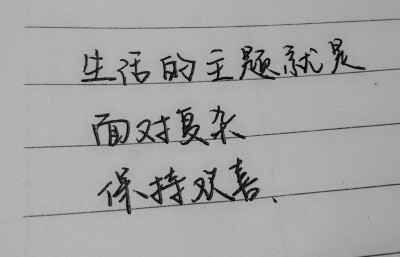 生活的主题就是
面对复杂
保持欢喜、